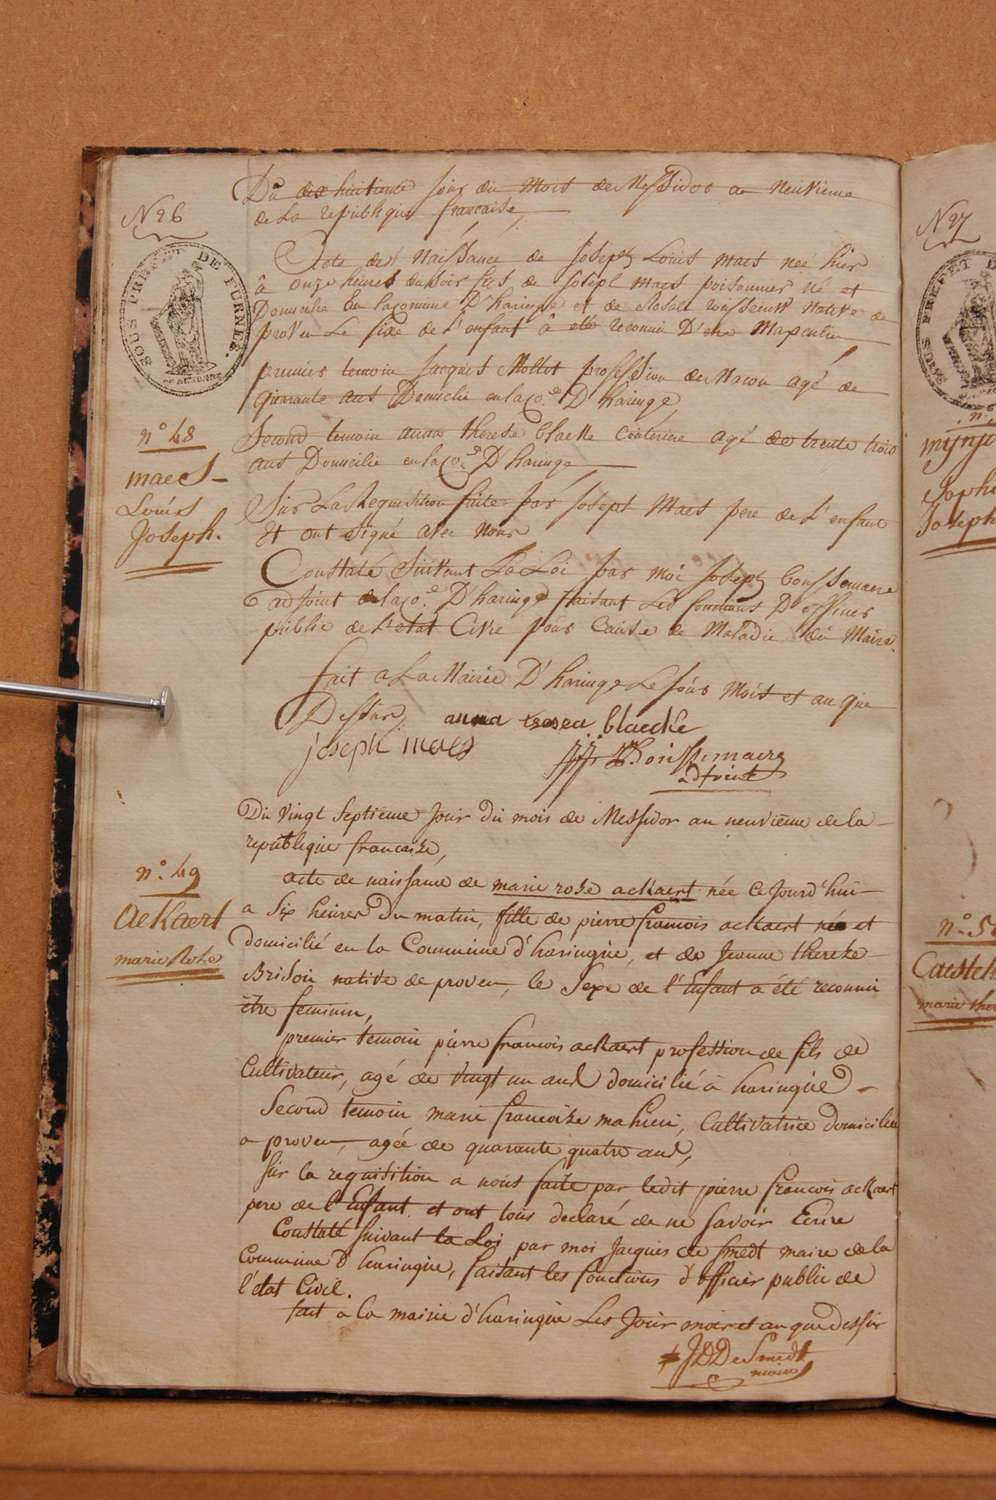 N 26
SOUS PREFET DE FURNES.
Du dix huitieme jour du mois de Messidor an neuvieme
de La republique francaise,
Acte de Naissance de Joseph Louis maes née hier
à onze heures du soir fils de Joseph maes poisonnier né et
Domicilie en la comune D'haringe et de native de
proven Le sixe de L'enfant à eté reconnu D'etre Masculin
premier temoin Jacques Mollet profession de Macon agé de
quarante ans Domicilie en la co.e D'haringe
n.o 48
maes
Louis
Joseph.
Second temoin anna therese blaeke agé de trente trois
ans Domicilie en la co.e D'haringe
Sur La Requisition faite par Joseph Maes pere de L'enfant
Et ont Signé avec Nous
Constaté Suivant La Loi par moi Joseph boussemaere
adjoint de la co.e D'haringe faisant Les fonctions D'officier
public de L'etat Civil pour Cause de Maladie du Maire.
fait a La Mairie D'haringe Le Jour Mois et an que
Dessus, anna blaecke
joseph maes
adjoint
Du vingt Septieme Jour du mois de Messidor an neuvieme de la
republique francaise,
n.o 49
ackaert
marie Rose
acte de naissance de marie rose ackaert née ce Jourd'hui
a Six heures Du matin, fille de pierre francois ackaert né et
domicilié en la Commune d'haringue, et de Jeanne therese
Brisoi native de proven, le Sexe de l'Enfant a été reconnu
être feminin,
premier temoin pierre francois ackaert profession de fils de
Cultivateur, agé de vingt un ans domicilié à haringue
Second temoin marie francoise mahieu, Cultivatrice domicilié
a proven, agée de quarante quatre ans,
Sur la requisition a nous faite par ledit pierre francois ackaert
pere de l'Enfant et ont tous declaré de ne savoir Ecrire
Constaté Suivant la Loi par moi Jacques de Smedt maire de la
Commune d'haringue, faisant les fonctions d'officier public de
l'état Civil.
fait a la mairie d'haringue Les Jour mois et an que dessus
J D De Smedt
maire
N 27
SOUS PREFET D
mijnjo
Joseph
n.o 5
Casteh
marie the